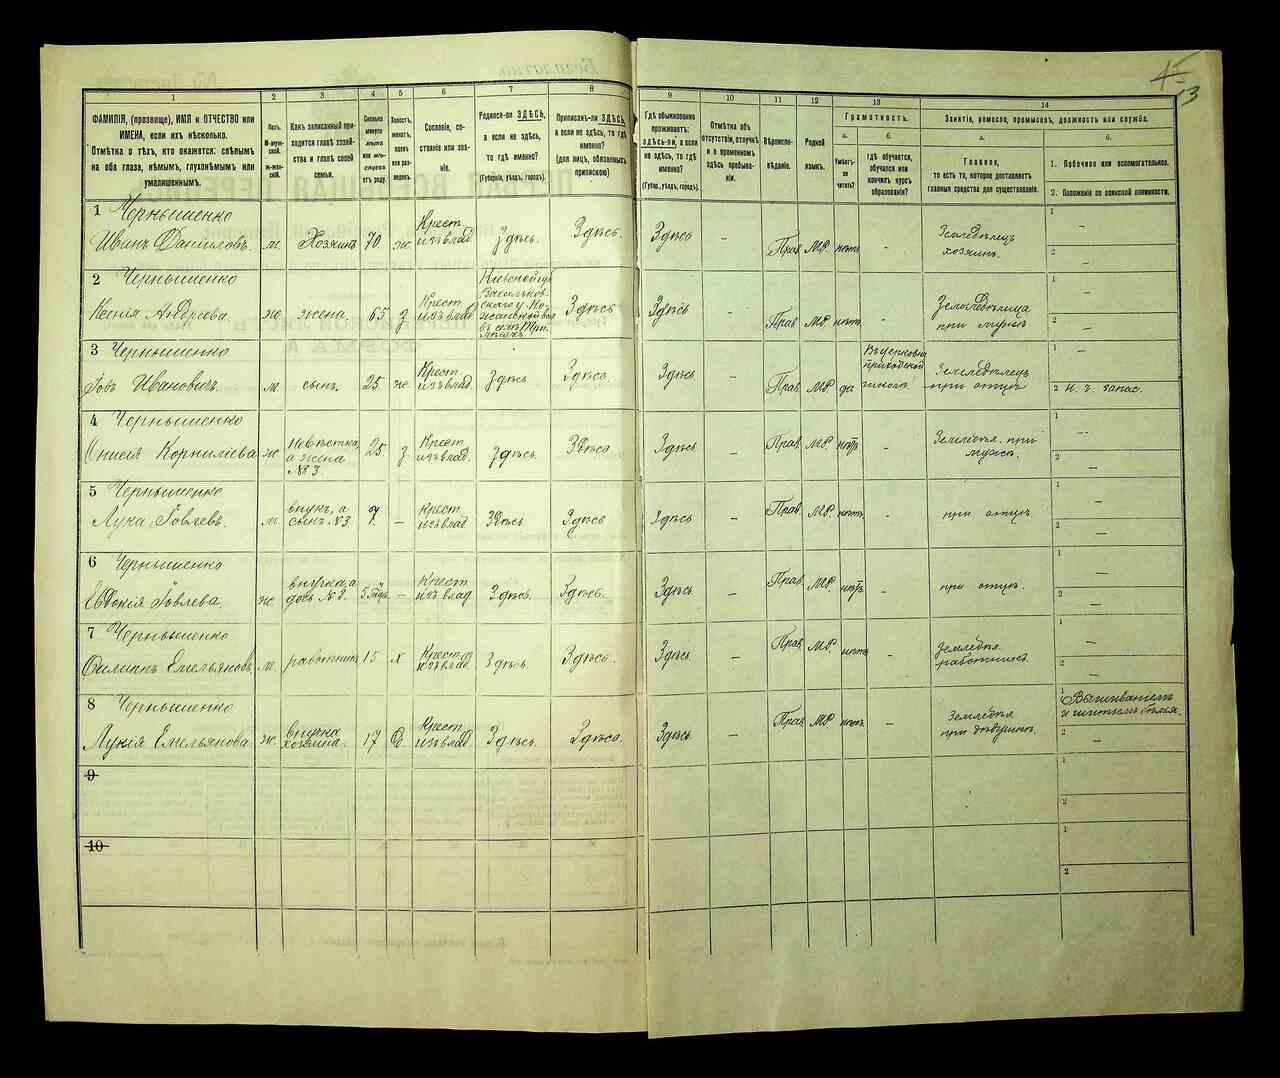 45
13
1
2
3
4
5
6
7
8
9
10
11
12
13
14
ФАМИЛІЯ, (прозвище), ИМЯ и ОТЧЕСТВО или
ИМЕНА, если ихъ нѣсколько.
Отмѣтка о тѣхъ, кто окажется: слѣпымъ
на оба глаза, нѣмымъ, глухонѣмымъ или
умалишеннымъ.
Полъ.
М-муж-
ской.
ж-жен-
скій.
Какъ записанный при-
ходится главѣ хозяй-
ства и главѣ своей
семьи.
Сколько
минуло
лѣтъ
или мѣ-
сяцевъ
отъ роду.
Холостъ,
женатъ,
вдовъ
или раз-
веденъ.
Сословіе, со-
стояніе или зва-
ніе.
Родился-ли ЗДѢСЬ,
а если не здѣсь,
то гдѣ именно?
(Губернія, уѣздъ, городъ).
Приписанъ-ли ЗДѢСЬ,
а если не здѣсь, то гдѣ
именно?
(для лицъ, обязанныхъ
припискою)
Гдѣ обыкновенно
проживаетъ:
здѣсь-ли, а если
не здѣсь, то гдѣ
именно?
(Губер., уѣздъ, городъ).
Отмѣтка объ
отсутствіи, отлучкѣ
и о временномъ
здѣсь пребыва-
ніи.
Вѣроиспо-
вѣданіе.
Родной
языкъ.
Грамотность.
а.
Умѣетъ-
ли
читать?
б.
гдѣ обучается,
обучался или
кончилъ курсъ
образованія?
Занятіе, ремесло, промыселъ, должность или служба.
а.
Главное,
то есть то, которое доставляетъ
главныя средства для существованія.
б.
1. Побочное или вспомогательное.
2. Положеніе по воинской повинности.
1 Чернышенко
Иванъ Даниловъ. м. Хозяинъ 70 ж Крест. изъ влад. Здѣсь. Здѣсь. Здѣсь – Прав. МР. нѣтъ – Земледѣлецъ хозяинъ. 1 – 2 –
2 Чернышенко
Ксенія Андреева. ж. жена. 65 з Крест. изъ влад. Кіевской губ. Васильков-
скаго у.
Здѣсь Здѣсь – Прав. МР. нѣтъ – Земледѣлица при мужѣ 1 – 2 –
3 Чернышенко
Іовъ Ивановичъ. м. сынъ. 25 ж. Крест. изъ влад. Здѣсь Здѣсь. Здѣсь. – Прав. МР. да Въ церковно приходской школѣ. Земледѣлецъ при отцѣ 1 – 2 Н. ч. запас.
4 Чернышенко
Онисія Корниліева ж. невѣстка, а жена № 3. 25 з. Крест. изъ влад. Здѣсь. Здѣсь Здѣсь. – Прав. МР. нѣтъ – Земледѣл. при мужѣ. 1 – 2 –
5 Чернышенко
Лука Іовлевъ. м. внукъ, а сынъ № 3 7 – Крест. изъ влад Здѣсь. Здѣсь Здѣсь – Прав. МР. нѣтъ – при отцѣ 1 – 2 –
6 Чернышенко
Евдокія Іовлева. ж. внучка, а дочь № 3. 5 – Крест. изъ влад Здѣсь. Здѣсь. Здѣсь. – Прав. МР. нѣтъ – при отцѣ. 1 – 2 –
7 Чернышенко
Филиппъ Емельяновъ. м. работникъ 15 х Крест. изъ влад. Здѣсь. Здѣсь. Здѣсь. – Прав. МР. нѣтъ – Земледѣл. работникъ. 1 – 2 –
8 Чернышенко
Лукія Емельянова. ж. внучка хозяина. 17 Крест. изъ влад. Здѣсь. Здѣсь. Здѣсь. – Прав. МР. нѣтъ – Земледѣл. при дѣдушкѣ. 1 Вышиваніемъ и шитьемъ бѣлья. 2 –
9
1
2
10
1
2